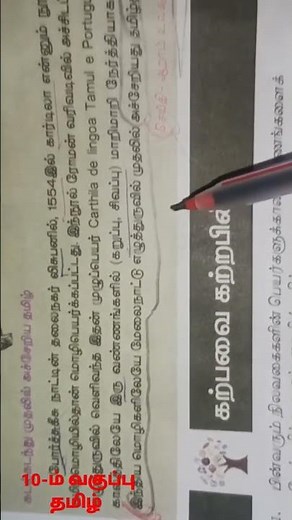 கடல்கடந்து முதலில் அச்சேறிய தமிழ்
போர்ச்சுக்கீசு நாட்டின் தலைநகர் லிசுபனில், 1554இல் கார்டிலா என்னும் நூ
மொழியில்தான் மொழிபெயர்க்கப்பட்டது. இந்நூல் ரோமன் வரிவடிவில் அச்சிடப்
உருவில் வெளிவந்த இதன் முழுப்பெயர் Carthila de lingoa Tamul e Portugu
காலத்திலேயே இரு வண்ணங்களில் (கறுப்பு, சிவப்பு) மாறிமாறி நேர்த்தியாக
இந்திய மொழிகளிலேயே மேலைநாட்டு எழுத்துருவில் முதலில் அச்சேறியது தமிழ்
கற்பவை கற்றபின்
1. பின்வரும் நிலவகைகளின் பெயர்களுக்கான
10-ம் வகுப்பு
தமிழ்